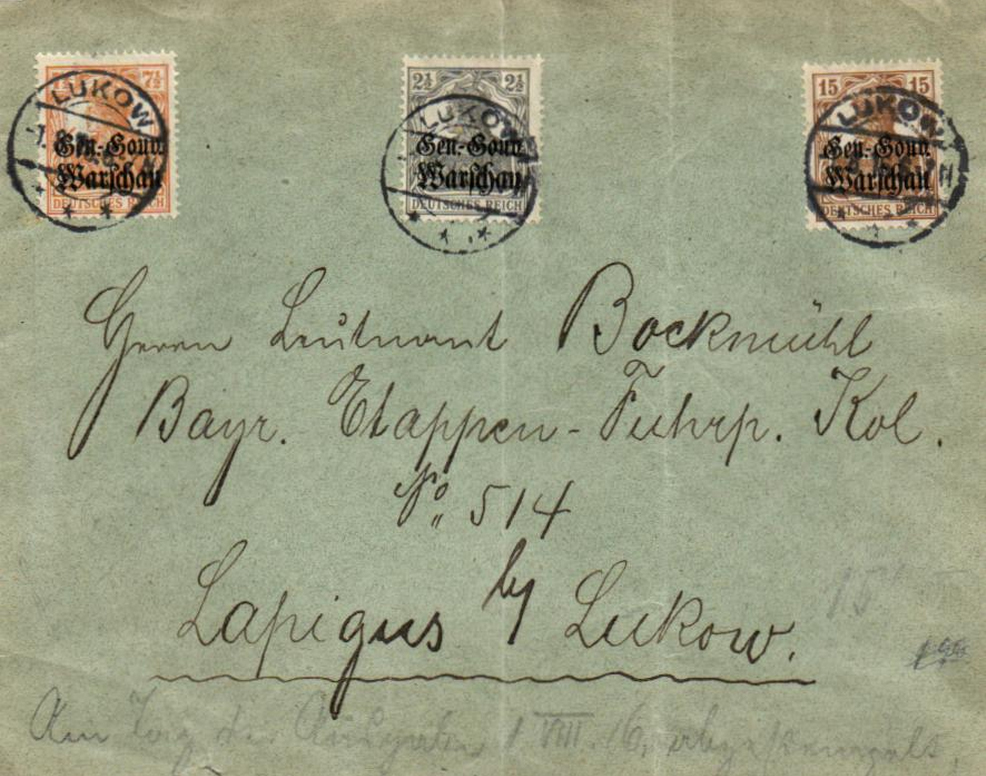 7½
LUKOW
Gen.-Gouv.
Warschau
DEUTSCHES REICH
2½ 2½
LUKOW
Gen.-Gouv.
Warschau
DEUTSCHES REICH
15 15
LUKOW
Gen.-Gouv.
Warschau
DEUTSCHES REICH
Herrn Leutnant Bockmühl
Bayr. Etappen-Fuhrp. Kol.
No. 514
Lapigus by Lukow.
15
Am Tag der Ausgabe 1 VIII. 16. abgestempelt.